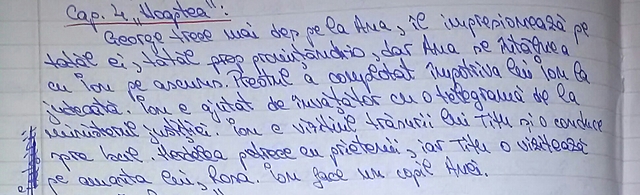 Cap. 4 "Noaptea":
George trece mai des pe la Ana, îl impresionează pe
tatăl ei, tatăl prop promițându-i-o, dar Ana se întâlnea
cu Ion pe ascuns. Preotul a complotat împotriva lui Ion la
judecată. Ion e ajutat de învățător cu o telegramă de la
ministrul justiției. Ion e vizitiul trăsurii lui Titu și o conduce
spre bal. Herdelea petrece cu prietenii, iar Titu o vizitează
pe amanta lui, Roza. Ion face un copil Anei.